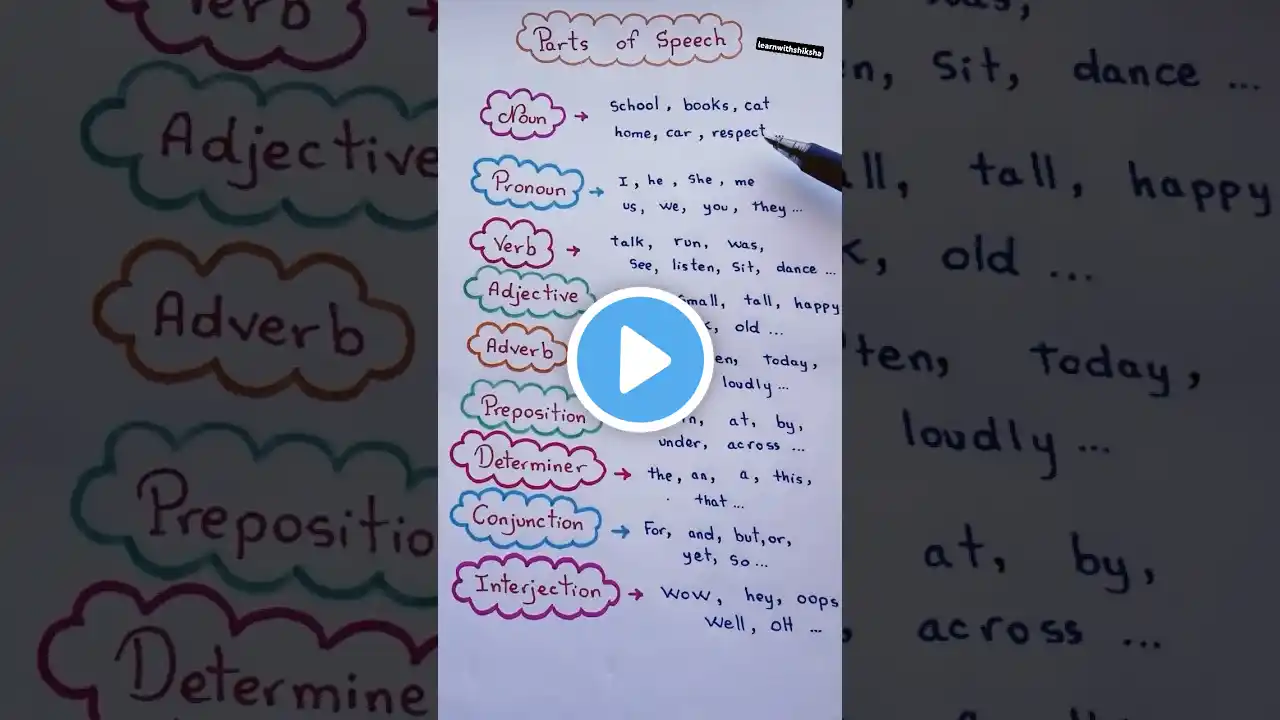 Parts of Speech
learnwithshiksha
Noun → School, books, cat
home, car, respect...
Pronoun → I, he, She, me
us, we, you, they...
Verb → talk, run, was,
See, listen, Sit, dance...
Adjective Small, tall, happy
old...
Adverb Today,
loudly...
Preposition at, by,
under, across...
Determiner → the, an, a, this,
that...
Conjunction → For, and, but, or,
yet, So...
Interjection → Wow, hey, oops
Well, oH ...
Verb
Adjective
Adverb
Sit, dance ...
tall, happy
old ...
Today,
loudly ...
at, by,
across ...